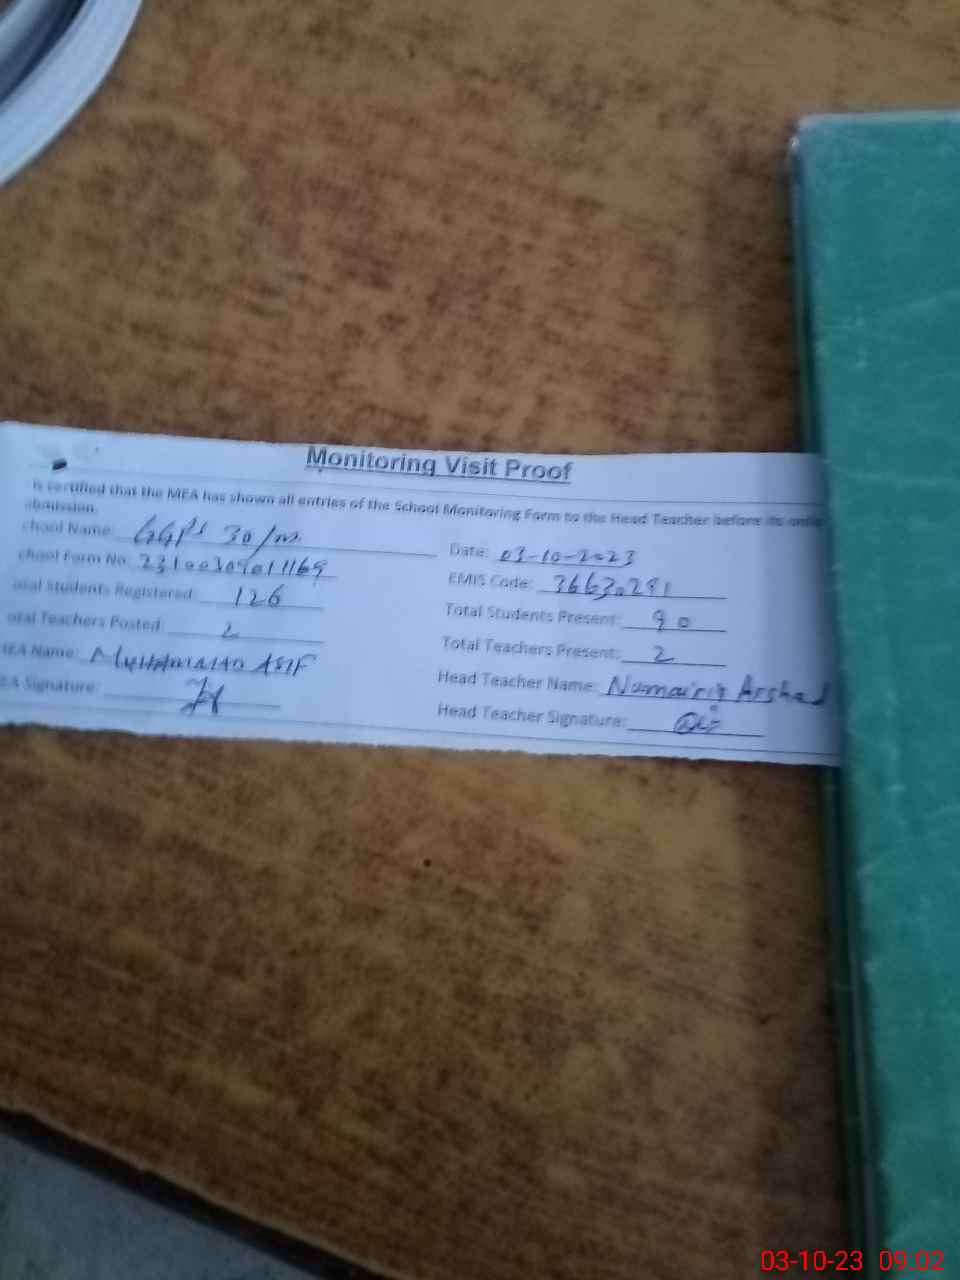 Monitoring Visit Proof
is certified that the MEA has shown all entries of the School Monitoring Form to the Head Teacher before its
ubmission.
chool Name: GGPS 30/m
Date: 03-10-2023
chool Form No:
EMIS Code: 36630291
otal Students Registered: 126
Total Students Present: 90
otal Teachers Posted: 2
Total Teachers Present: 2
MEA Name: MUHAMMAD ASIF
Head Teacher Name: Arshad
EA Signature:
Head Teacher Signature:
03-10-23 09:02